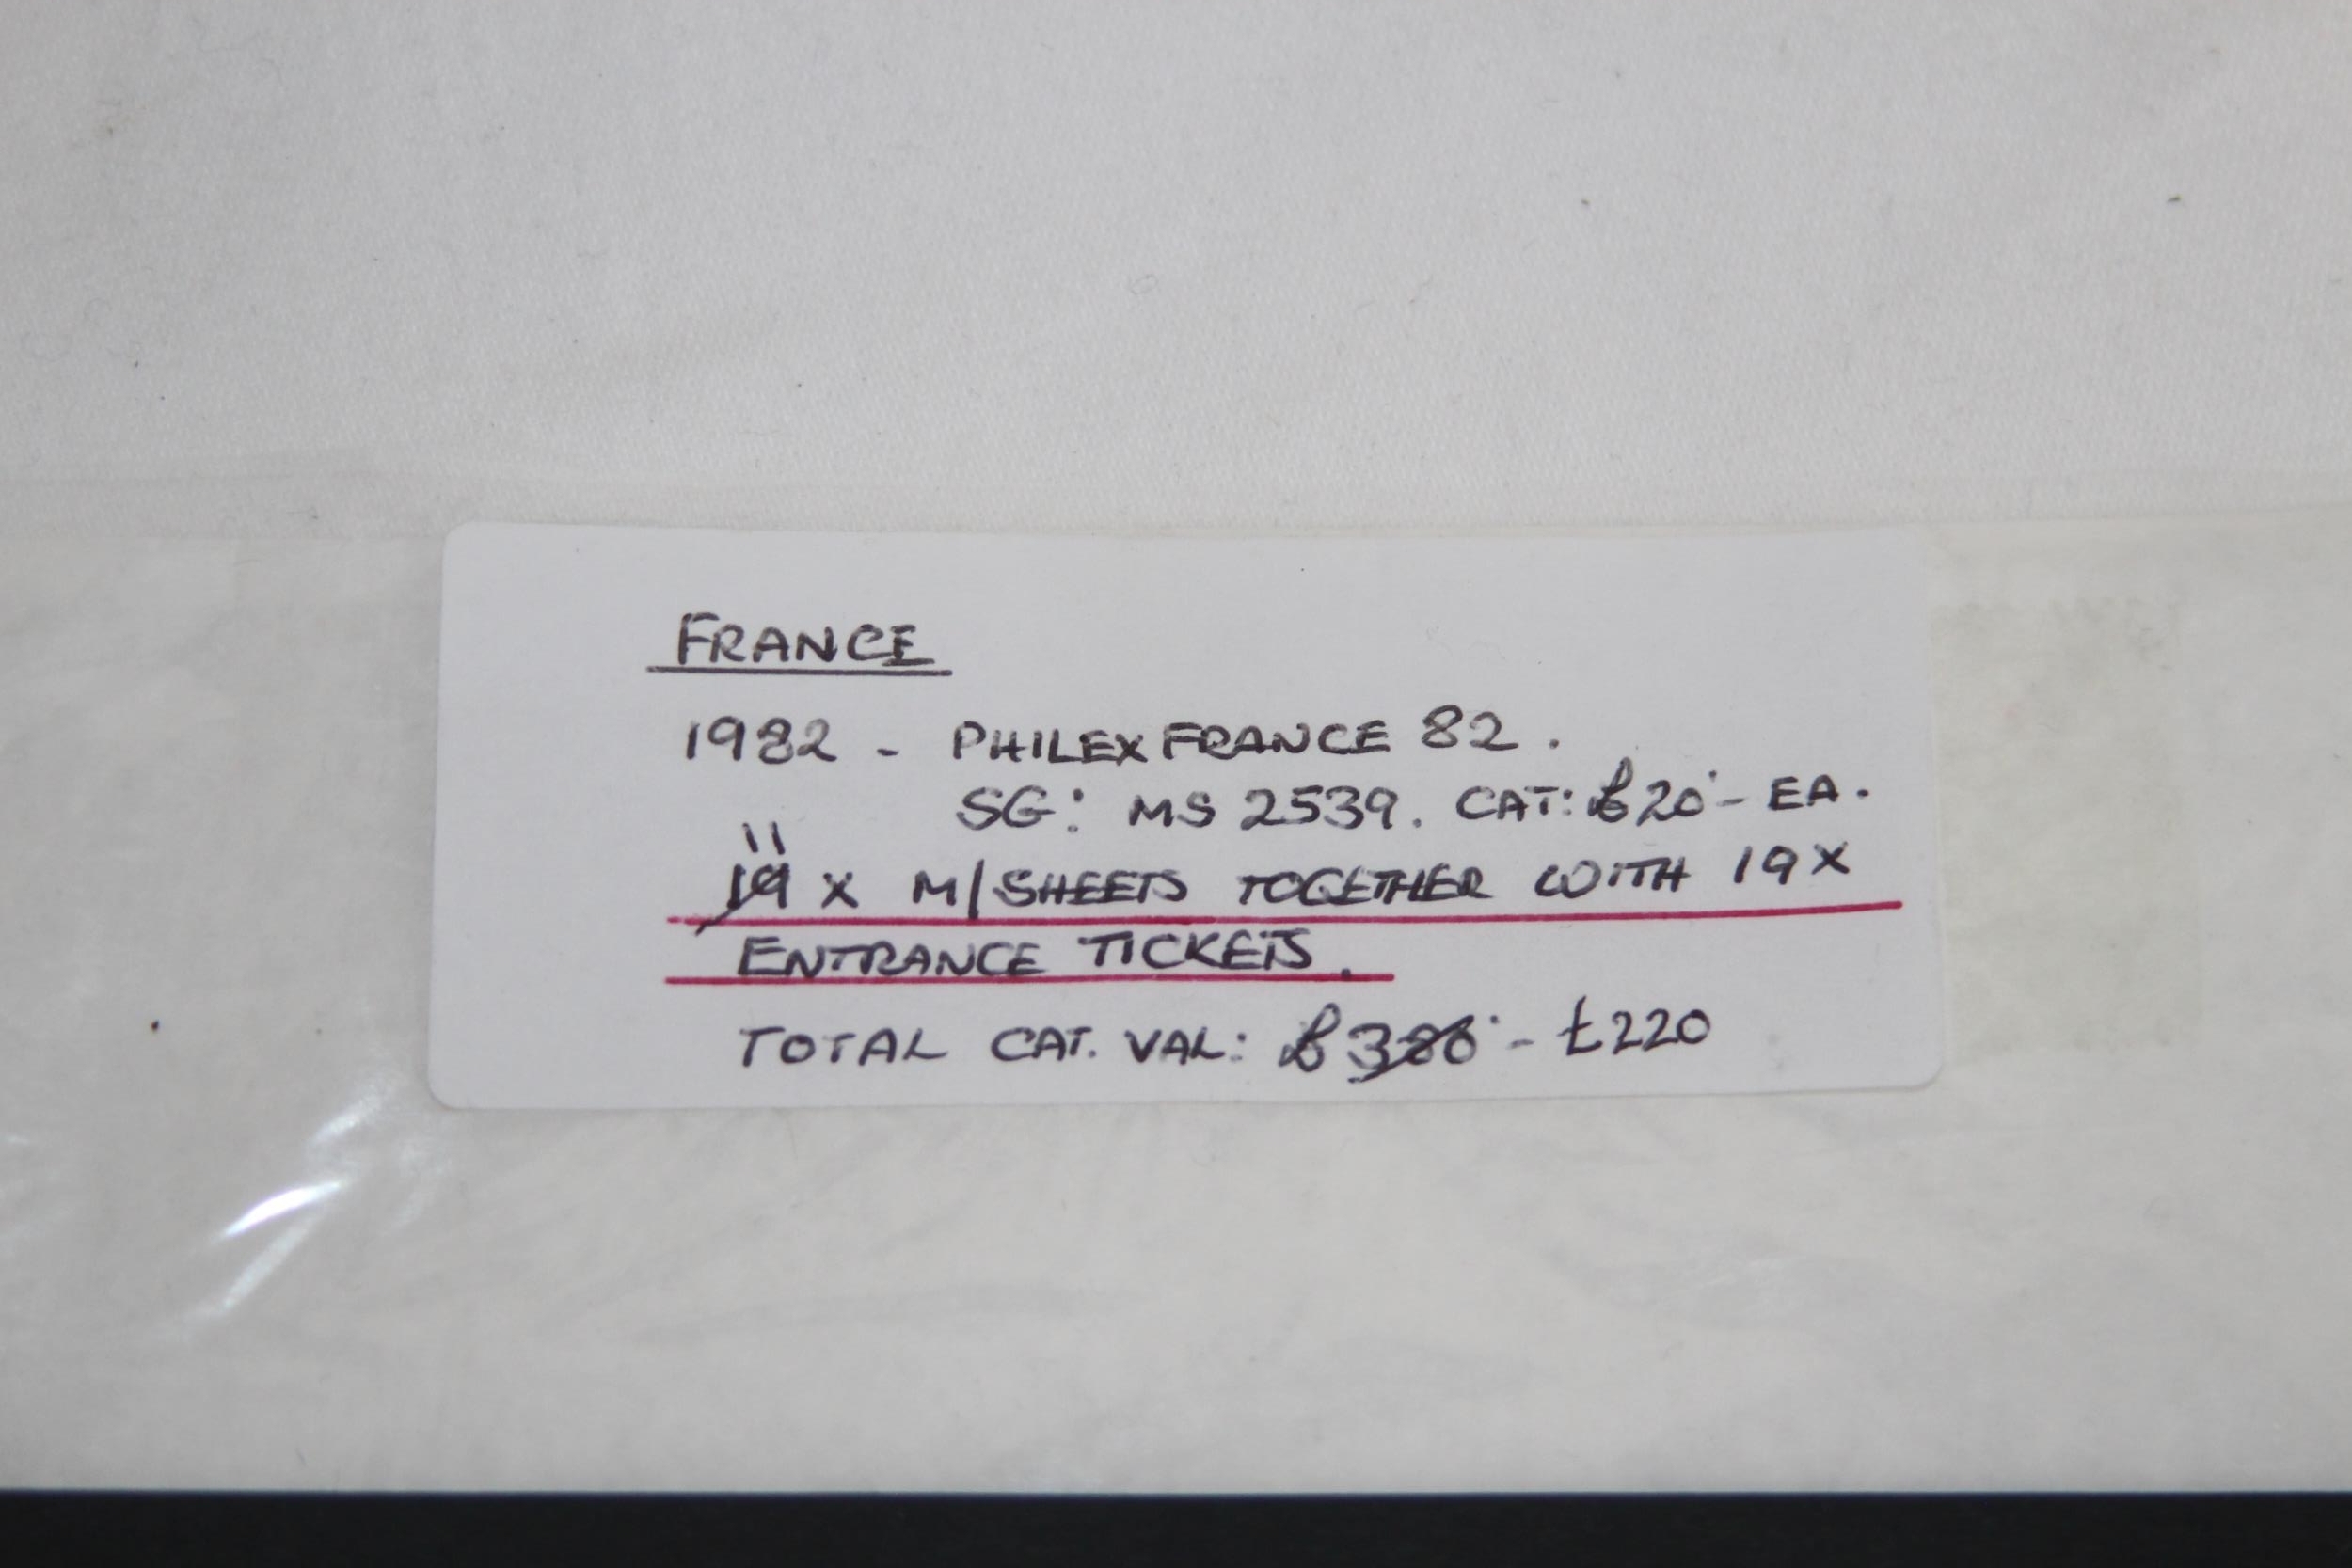 FRANCE
1982 - PHILEXFRANCE 82.
SG: MS 2539. CAT: £20·- EA.
11
19 X M/SHEETS TOGETHER WITH 19X
ENTRANCE TICKETS.
TOTAL CAT. VAL: £380·- £220